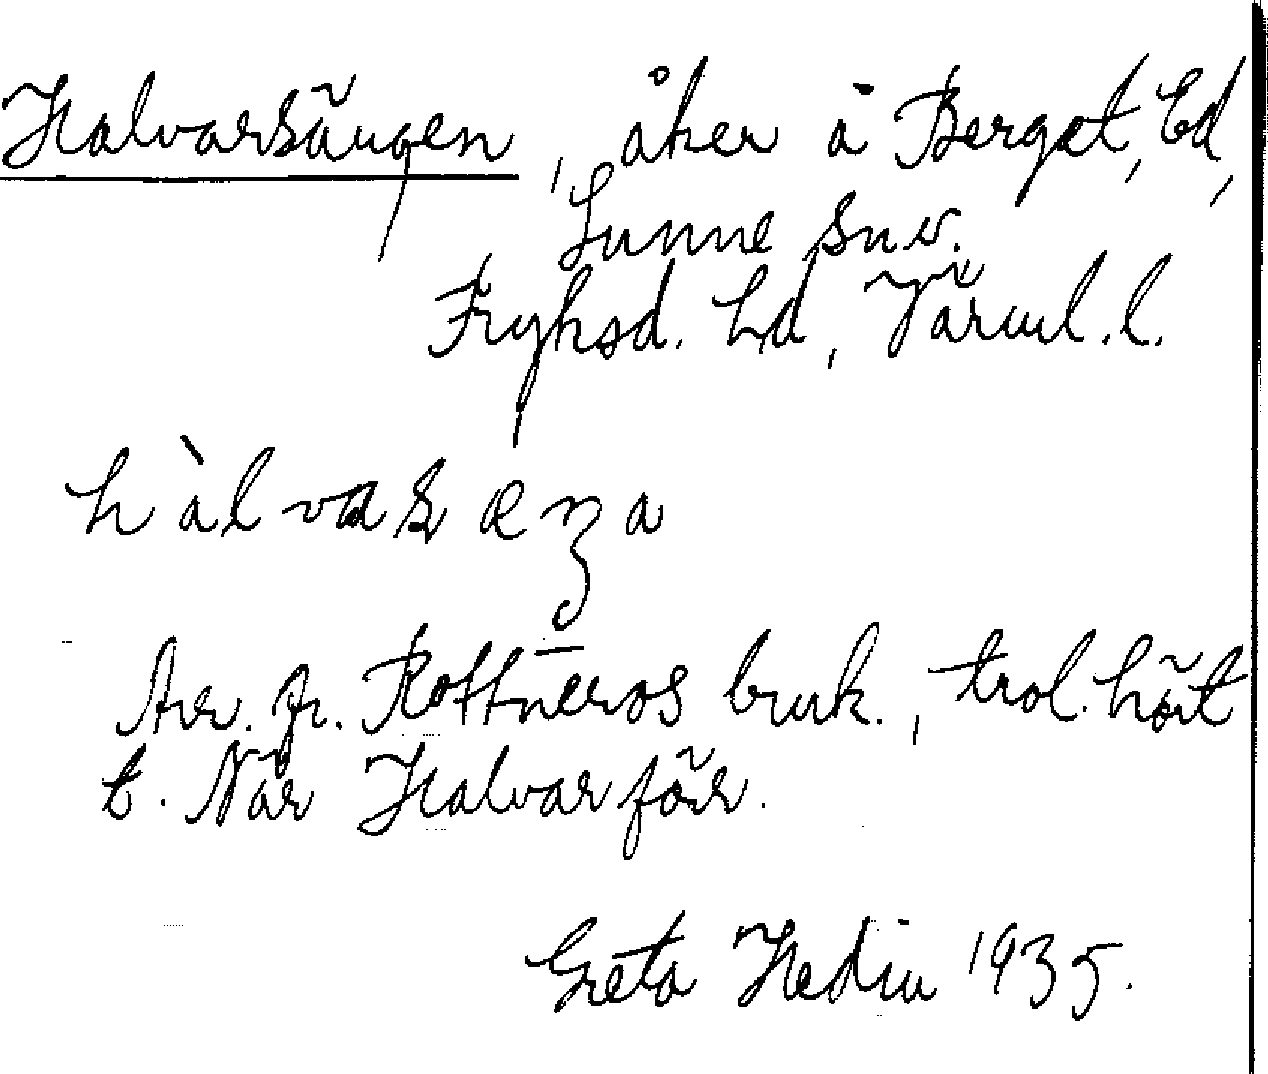 Halvarsängen, åker å Berget, Ed,
Sunne snv.
Fryksd. hd, Värml. l.
hàlvas æŋa
Arr. fr. Rottneros bruk., trol. hört
t. När Halvarförr.
Greta Hedin 1935.